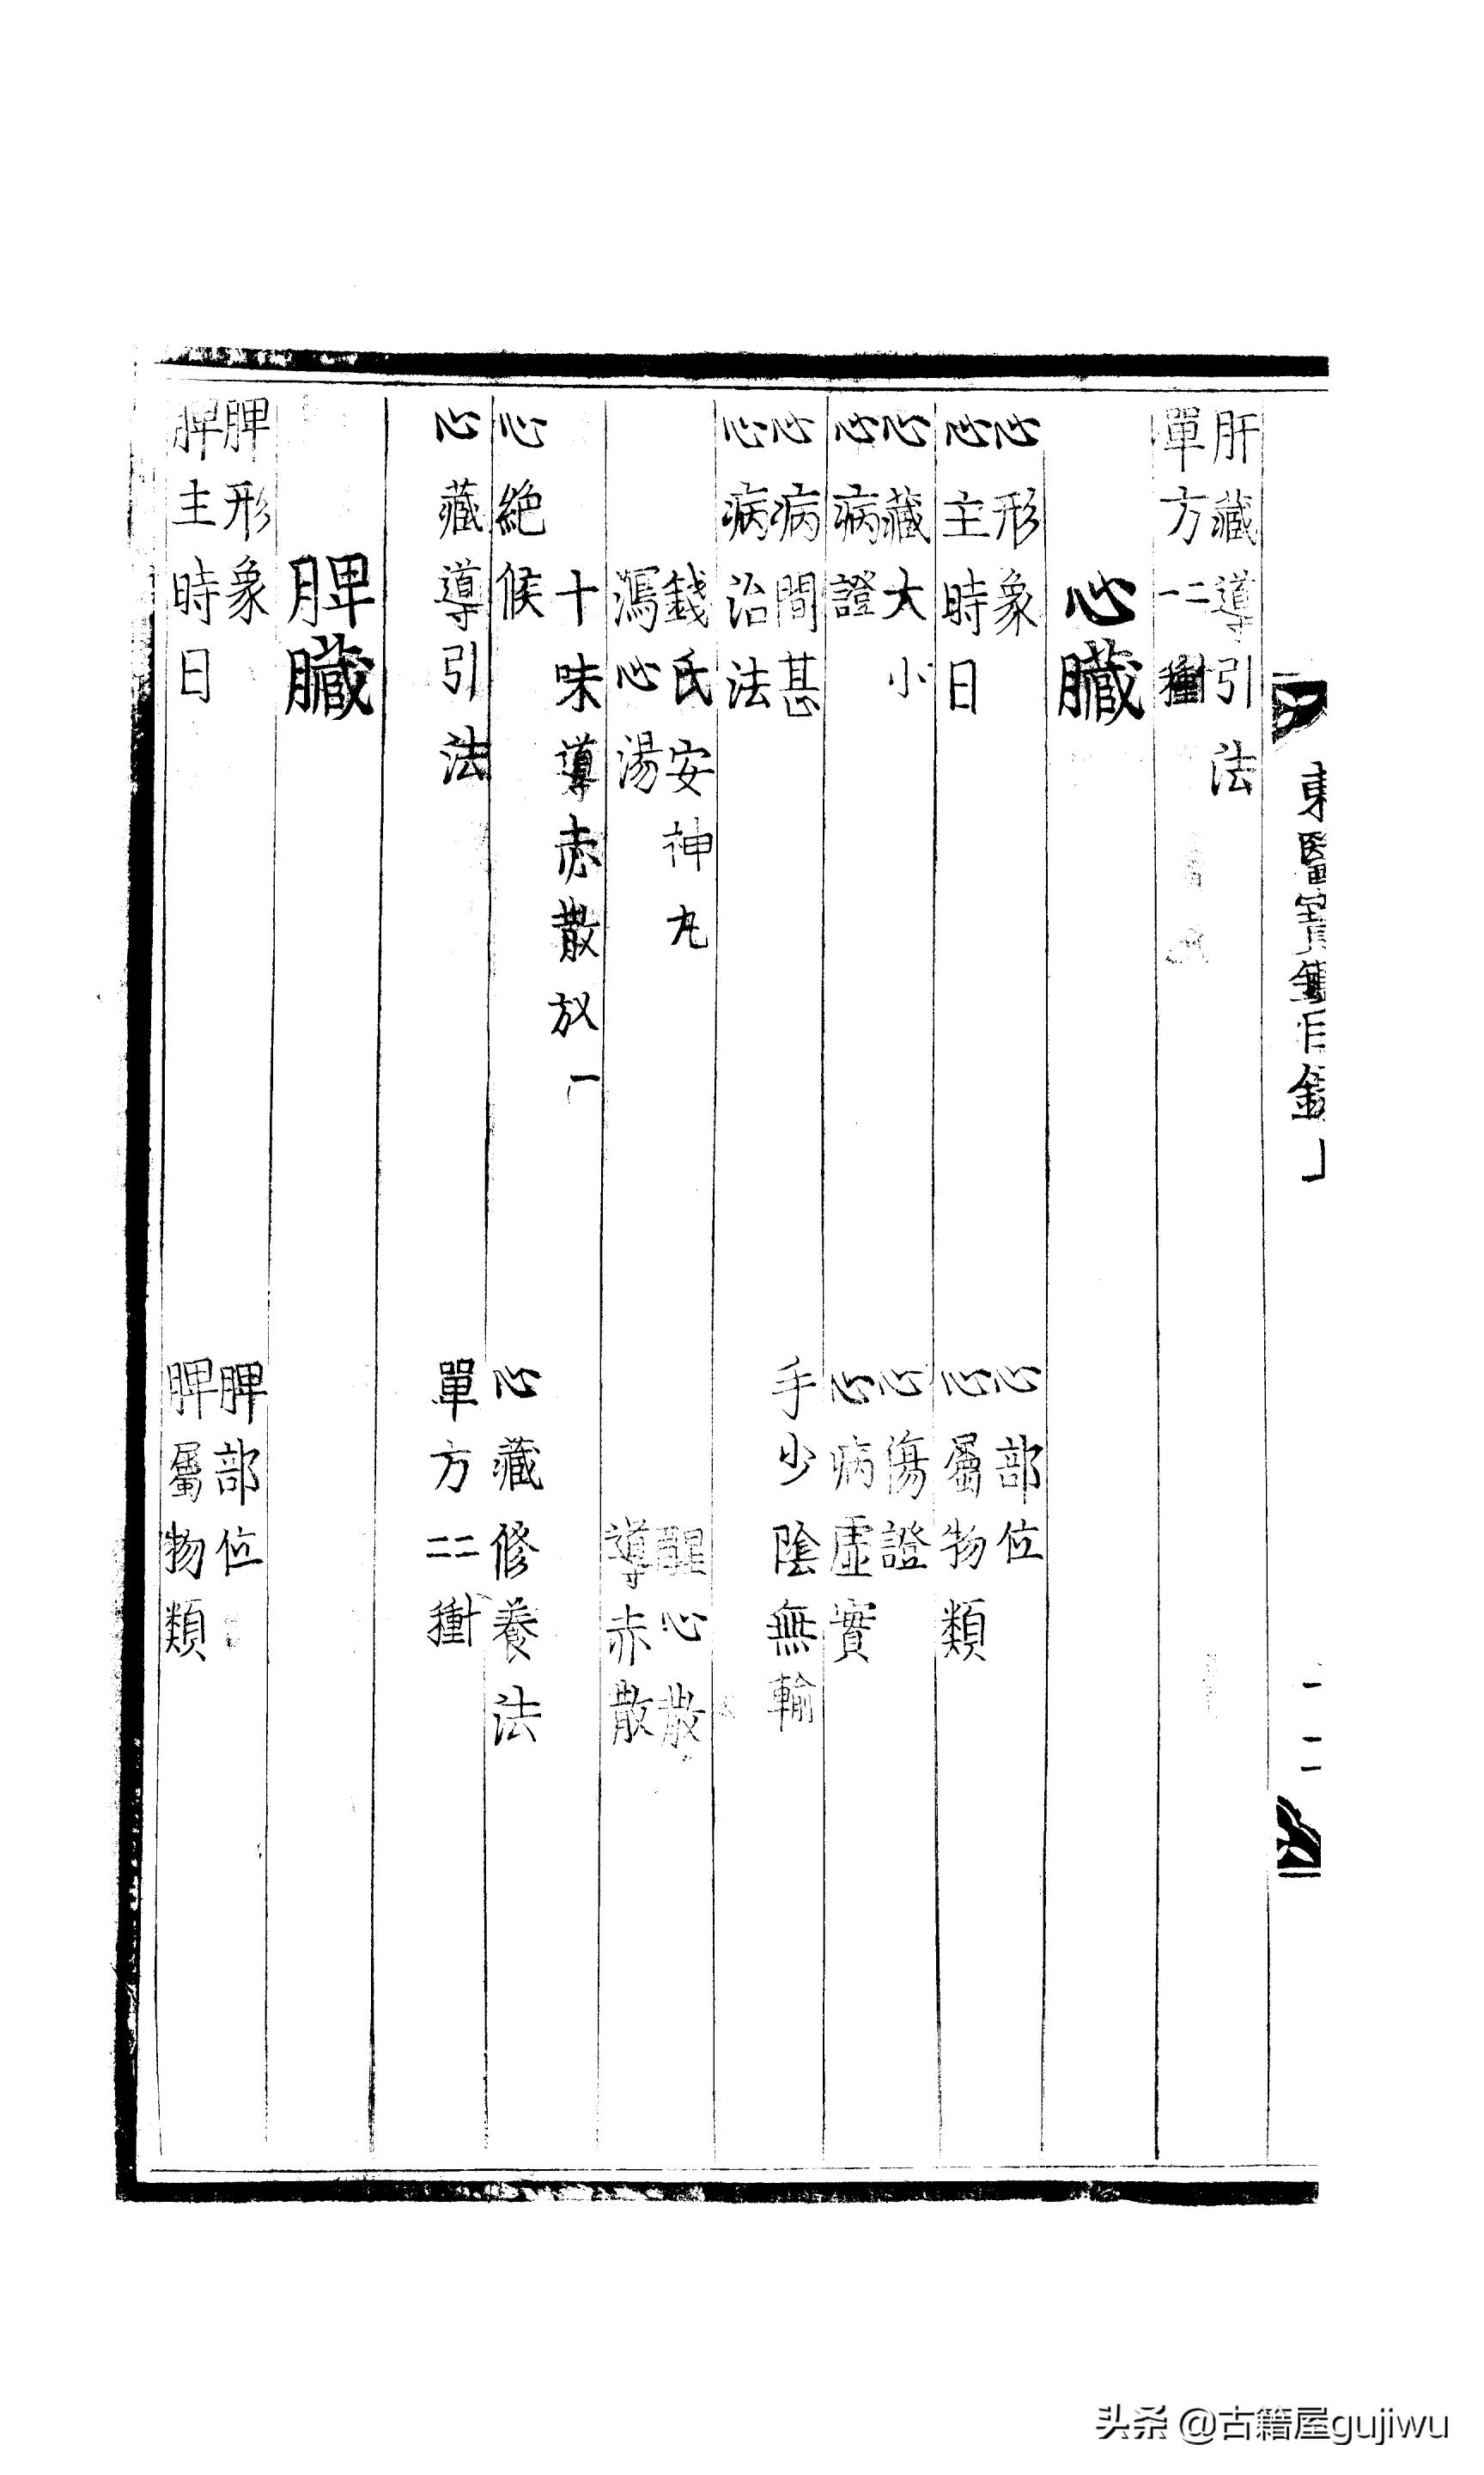 東醫寶鑑目錄
一二
肝藏導引法
單方二一種
心臟
心形象
心部位
心主時日
心屬物類
心藏大小
心傷證
心病證
心病虛實
心病間甚
手少陰無輸
心病治法
錢氏安神丸
醒心散
瀉心湯
導赤散
十味導赤散放一
心絕候
心藏修養法
心藏導引法
單方二二種
脾臟
脾形象
脾部位
脾主時日
脾屬物類
头条 @古籍屋gujiwu